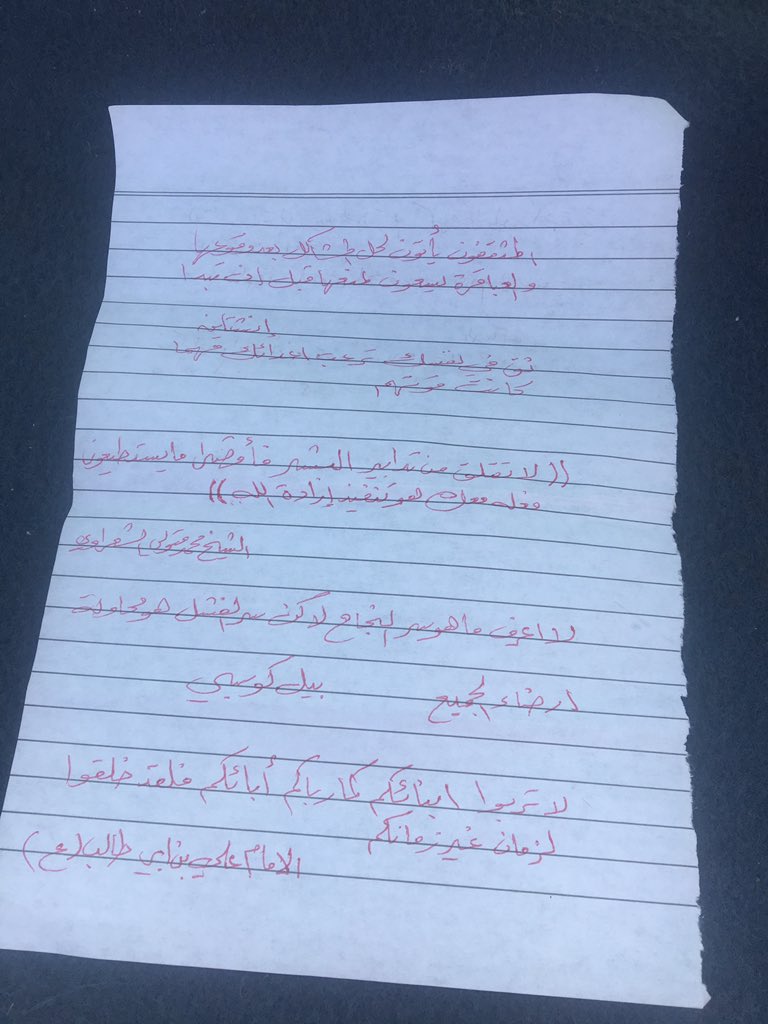 المثقفون يأتون لحل المشاكل بعد وقوعها
والعباقرة يسعون لمنعها قبل ان تبدا
إنشتاين
ثق في نفسك ترعب اعدائك مهما
كانت قوتهم
((لا تقلق من تدابير البشر فأقصى ما يستطيعون
فعله معك هو تنفيذ إرادة الله))
الشيخ محمد متولي الشعراوي
لا اعرف ما هو سر النجاح لاكن سر الفشل هو محاولة
ارضاء الجميع
بيل كوسبي
لا تربوا ابنائكم كما رباكم أبائكم فلقد خلقوا
لزمان غير زمانكم
الامام علي بن ابي طالب (ع)